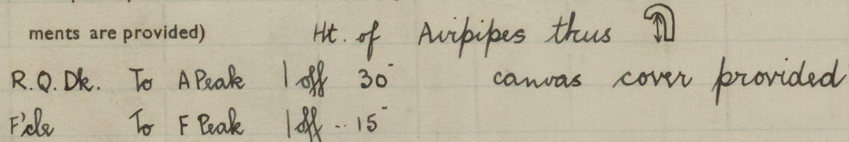 ments are provided) Ht. of Airpipes thus
R.Q.Dk. To A Peak 1 off 30" canvas cover provided
F'cle To F Peak 1 off -- 15"